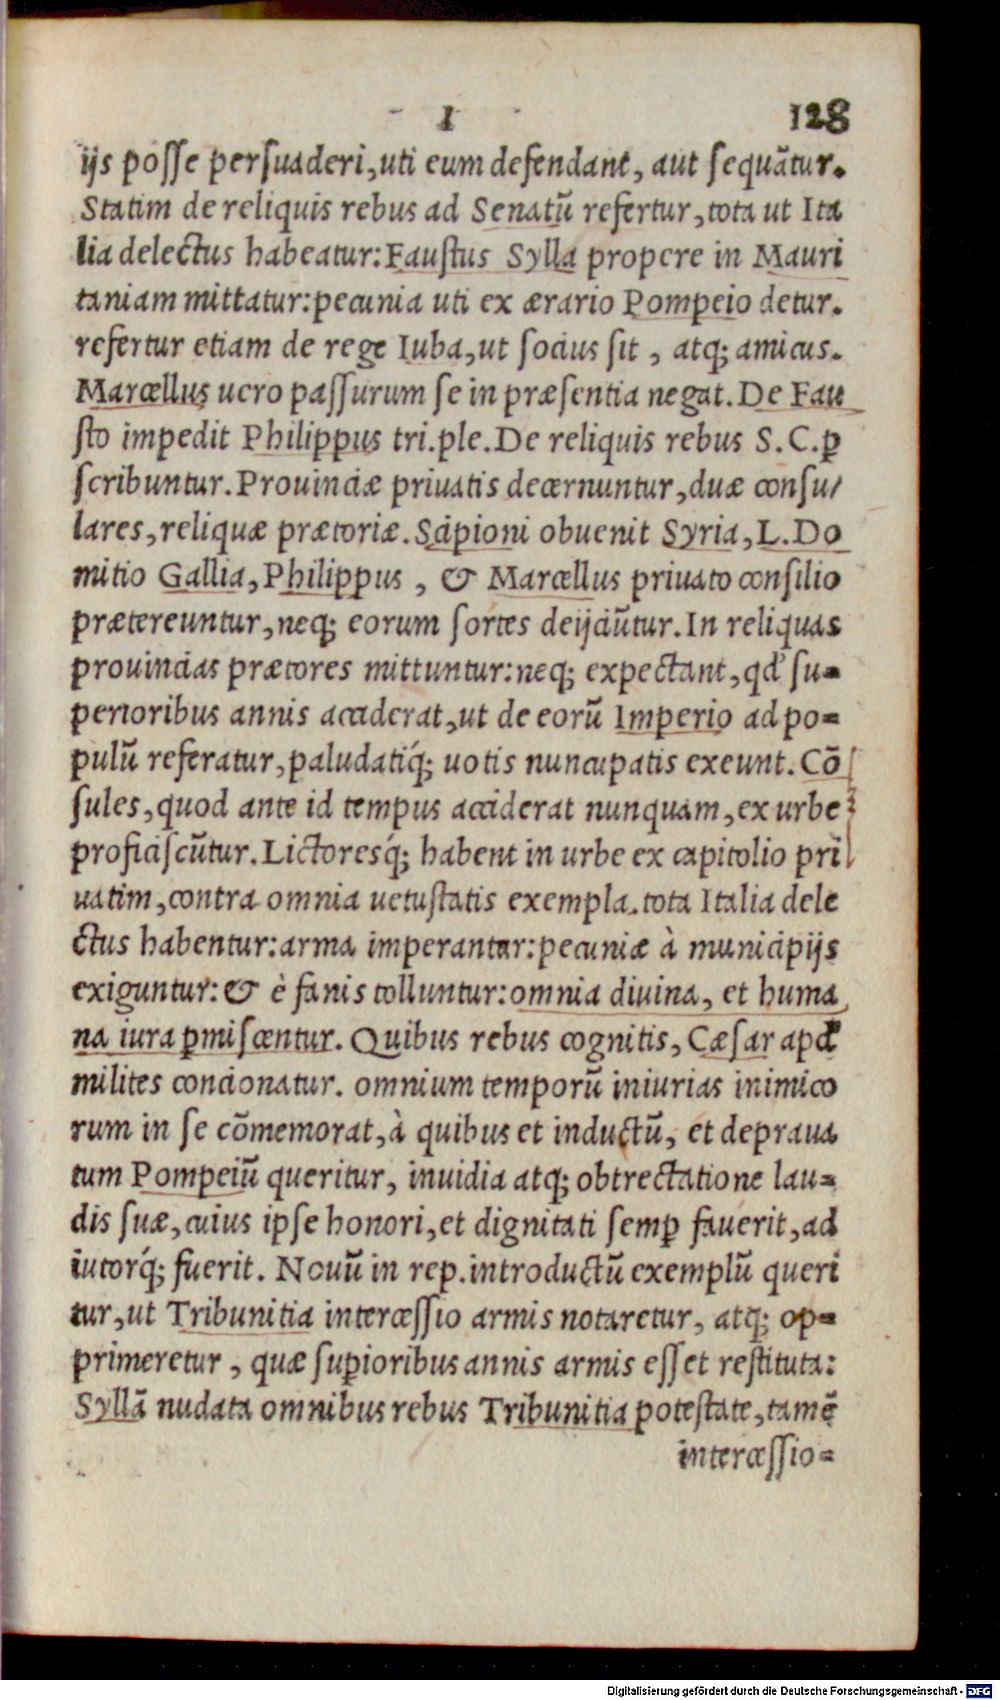 I 128
ijs posse persuaderi, uti eum defendant, aut sequātur.
Statim de reliquis rebus ad Senatū refertur, tota ut Ita
lia delectus habeatur: Faustus Sylla propere in Mauri
taniam mittatur: pecunia uti ex ærario Pompeio detur.
refertur etiam de rege Iuba, ut socius sit, atq; amicus.
Marcellus uero passurum se in præsentia negat. De Fau
sto impedit Philippus tri.ple. De reliquis rebus S.C. ꝑ
scribuntur. Prouinciæ priuatis decernuntur, duæ consu/
lares, reliquæ prætoriæ. Scipioni obuenit Syria, L. Do
mitio Gallia, Philippus, & Marcellus priuato consilio
prætereuntur, neq; eorum sortes deijciūtur. In reliquas
prouincias prætores mittuntur: neq; expectant, qđ su-
perioribus annis acciderat, ut de eorū Imperio ad po-
pulū referatur, paludatiq́; uotis nuncupatis exeunt. Cō
sules, quod ante id tempus acciderat nunquam, ex urbe
proficiscūtur. Lictoresq́; habent in urbe ex capitolio pri
uatim, contra omnia uetustatis exempla. tota Italia dele
ctus habentur: arma imperantur: pecuniæ à municipijs
exiguntur: & è fanis tolluntur: omnia diuina, et huma
na iura ꝑmiscentur. Quibus rebus cognitis, Cæsar apđ
milites concionatur. omnium temporū iniurias inimico
rum in se cōmemorat, à quibus et inductū, et depraua
tum Pompeiū queritur, inuidia atq; obtrectatione lau-
dis suæ, cuius ipse honori, et dignitati semꝑ fauerit, ad
iutorq́; fuerit. Nouū in rep. introductū exemplū queri
tur, ut Tribunitia intercessio armis notaretur, atq; op-
primeretur, quæ suꝑioribus annis armis esset restituta:
Syllā nudata omnibus rebus Tribunitia potestate, tamē
intercessio-
Digitalisierung gefördert durch die Deutsche Forschungsgemeinschaft - DFG